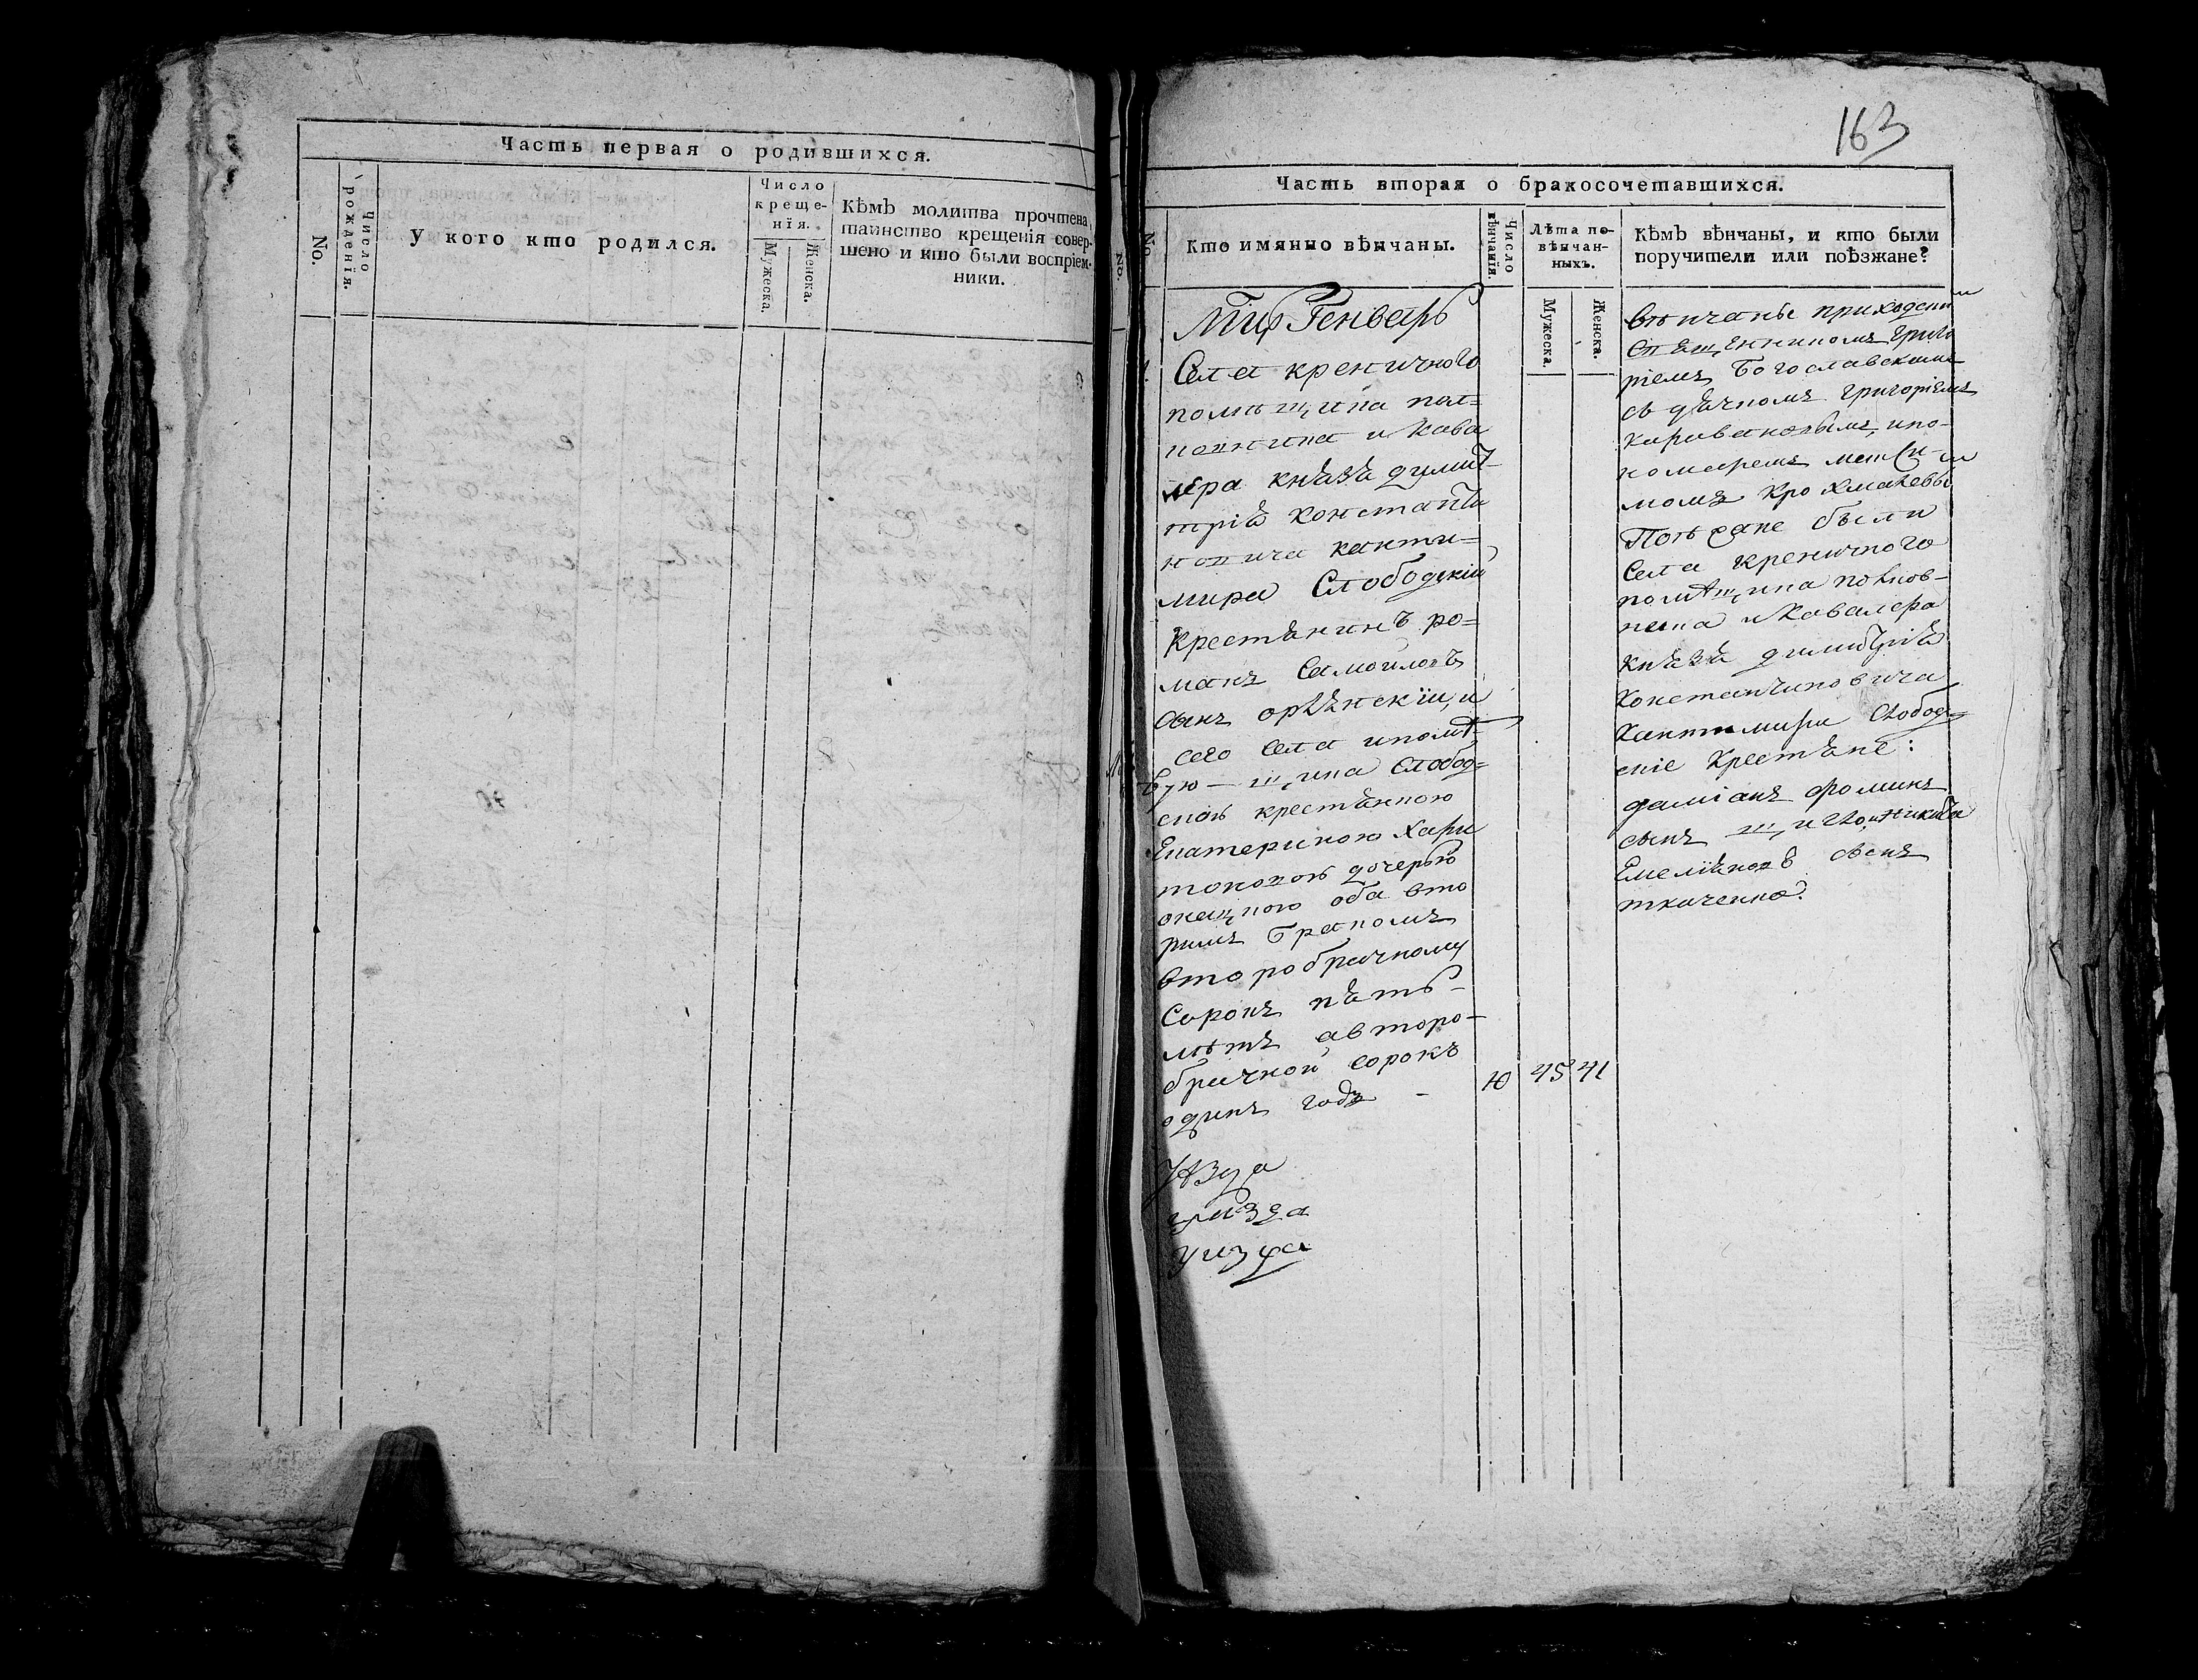 Часть первая о родившихся.
No.
Число рожденїя.
У кого кто родился.
Число
креще-
нїя.
Мужеска.
Женска.
Кѣмъ молитва прочтена,
таинство крещенїя совер-
шено и кто были воспрїем-
ники.
163
Часть вторая о бракосочетавшихся.
No.
Кто имянно вѣнчаны.
Число вѣнчанїя.
Лѣта по-
вѣнчан-
ныхъ.
Мужеска.
Женска.
Кѣмъ вѣнчаны, и кто были
поручители или поѣзжане?
Генварь
Села креничного
помѣщика пол-
ковника и Кава
лера князя дими
трїя Константи
новича канти-
мира Слободскїй
Крестянинъ ро-
манъ Самойловъ
сынъ и
сего села и помѣ-
щика Слобод-
скою крестянкою
Екатериною Хари
тоновою дочерью
оба вто
рымъ бракомъ
второбрачному
Сорокъ пять
лѣтъ а второ-
брачной сорокъ
одинъ годъ
10 45 41
Уѣзда
уизда
вѣнчаны приходским
Священникомъ Григо
рїемъ Богославскимъ
съ дячкомъ григорїемъ
и по-
номаремъ
Поѣзжане были
Села креничного
помѣщика полков-
ника и Кавалера
Князя димитрїя
Константиновича
Кантимира Слобод-
скїе Крестяне:
дамїанъ фоминъ
сынъ Никита
Емелїяновъ сынъ
ткаченко.